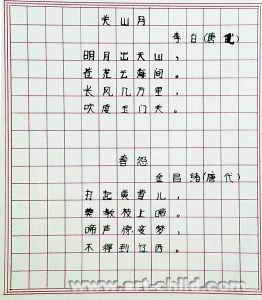 关山月
李白(唐
明月出天山,
苍茫云海间。
长风几万里,
吹度玉门关。
春怨
金昌绪(唐代)
打起黄莺儿,
莫教枝上啼。
啼声惊妾梦,
不得到辽西。